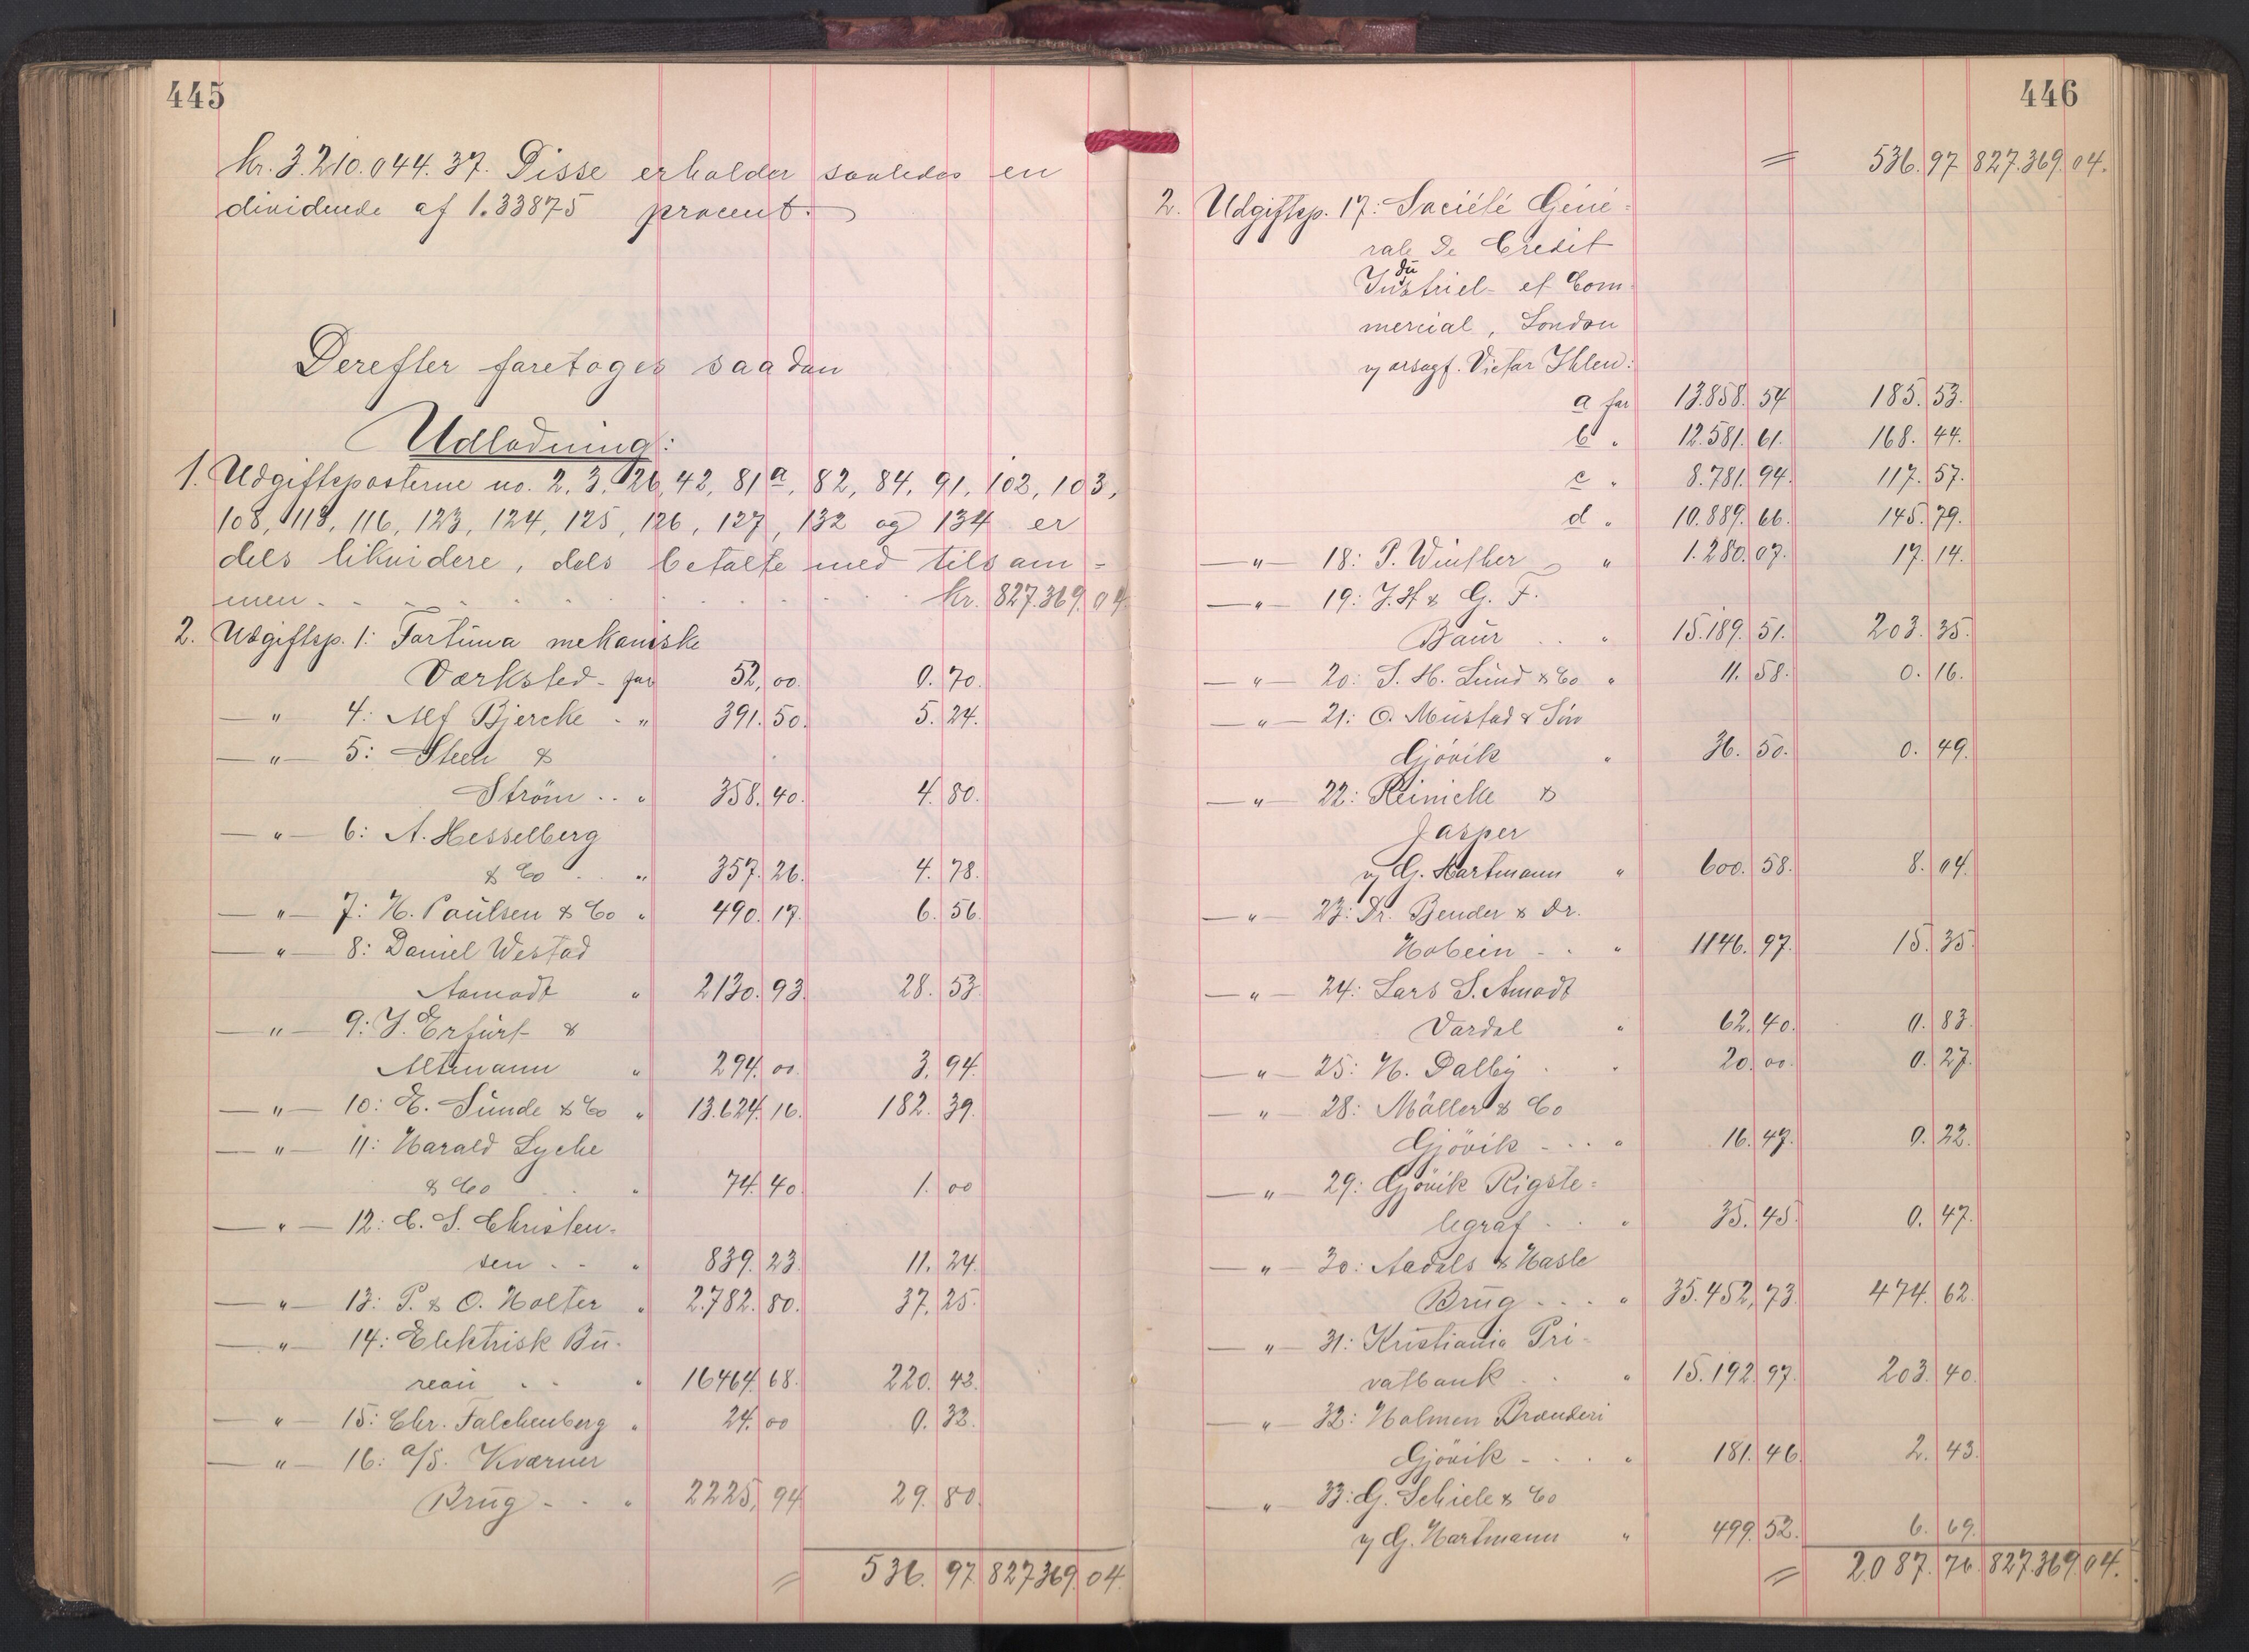 445
kr. 3.210.044.37. Disse erholder saaledes en
dividende af 1.33875 procent.
Derefter foretoges saadan
Udlodning:
1. Udgiftsposterne no. 2, 3, 26, 42, 81a, 82, 84, 91, 102, 103,
108, 113, 116, 123, 124, 125, 126, 127, 132 og 134 er
dels likvidere, dels betalte med tilsam=
men . . . . . . . kr. 827.369.04.
2. Udgiftsp. 1: Fortuna mekaniske
Værksted - for 52,00. 0.70.
— " 4: Alf Bjercke - " 391.50. 5.24.
— " — 5: Steen &
Ström . . " 358.40. 4.80.
— " — 6: A. Hesselberg
& Co . . " 357.26. 4.78.
— " — 7: H. Paulsen & Co " 490.17. 6.56.
— " — 8: Daniel Westad
Aamodt " 2130.93. 28.53.
— " — 9: J. Erfurt &
Altmann " 294.00. 3.94.
— " — 10: E. Sunde & Co " 13.624.16. 182.39.
— " — 11: Harald Lyche
& Co . . " 74.40. 1.00
— " — 12: C. S. Christen-
sen . . " 839.23. 11.24.
— " — 13: P. & O. Holter " 2.782.80. 37.25.
— " — 14: Elektrisk Bu-
reau . . " 16464.68. 220.42.
— " — 15: Chr. Falchenberg " 24.00 0.32.
— " — 16: a/S. Kværner
Brug - . " 2225,94 29.80.
= 536.97. 827369.04.
446
= 536.97 827.369.04.
2. Udgiftsp. 17: Société Géné-
rale de Credit
Industriel et Com-
mercial, London
v/ orsagf. Victor Ihlen:
a for 13.858.54 185.53.
b " 12.581.61. 168.44.
c " 8.781.94. 117.57.
d " 10.889.66. 145.79.
— " — 18: P. Winther " 1.280.07. 17.14.
— " — 19: J. H & G. F.
Baur . . " 15.189.51. 203.35.
— " — 20: S. H. Lund & Co " 11.58. 0.16.
— " — 21: O. Mustad & Sön
Gjövik " 36.50. 0.49.
— " — 22: Reinicke &
Jasper
v/ G. Hartmann " 600.58. 8.04.
— " — 23: Dr. Bender & Dr.
Hobein - . " 1146.97. 15.35.
— " — 24: Lars S. Amodt
Vardal " 62.40. 0.83.
— " — 25: H. Dalby . " 20.00. 0.27.
— " — 28: Möller & Co
Gjövik - . . " 16.47. 0.22.
— " — 29: Gjövik Rigste=
legraf . . " 35.45. 0.47.
— " — 30: Aadals & Hasle
Brug - . . " 35.452,73. 474.62.
— " — 31: Kristiania Pri-
vatbank . . " 15.192.97. 203.40.
— " — 32: Holmen Brænderi
Gjövik - . . " 181.46. 2.43.
— " 33: G. Schiele & Co
v/ G. Hartmann " 499.52. 6.69.
= 2087.76. 827.369.04.